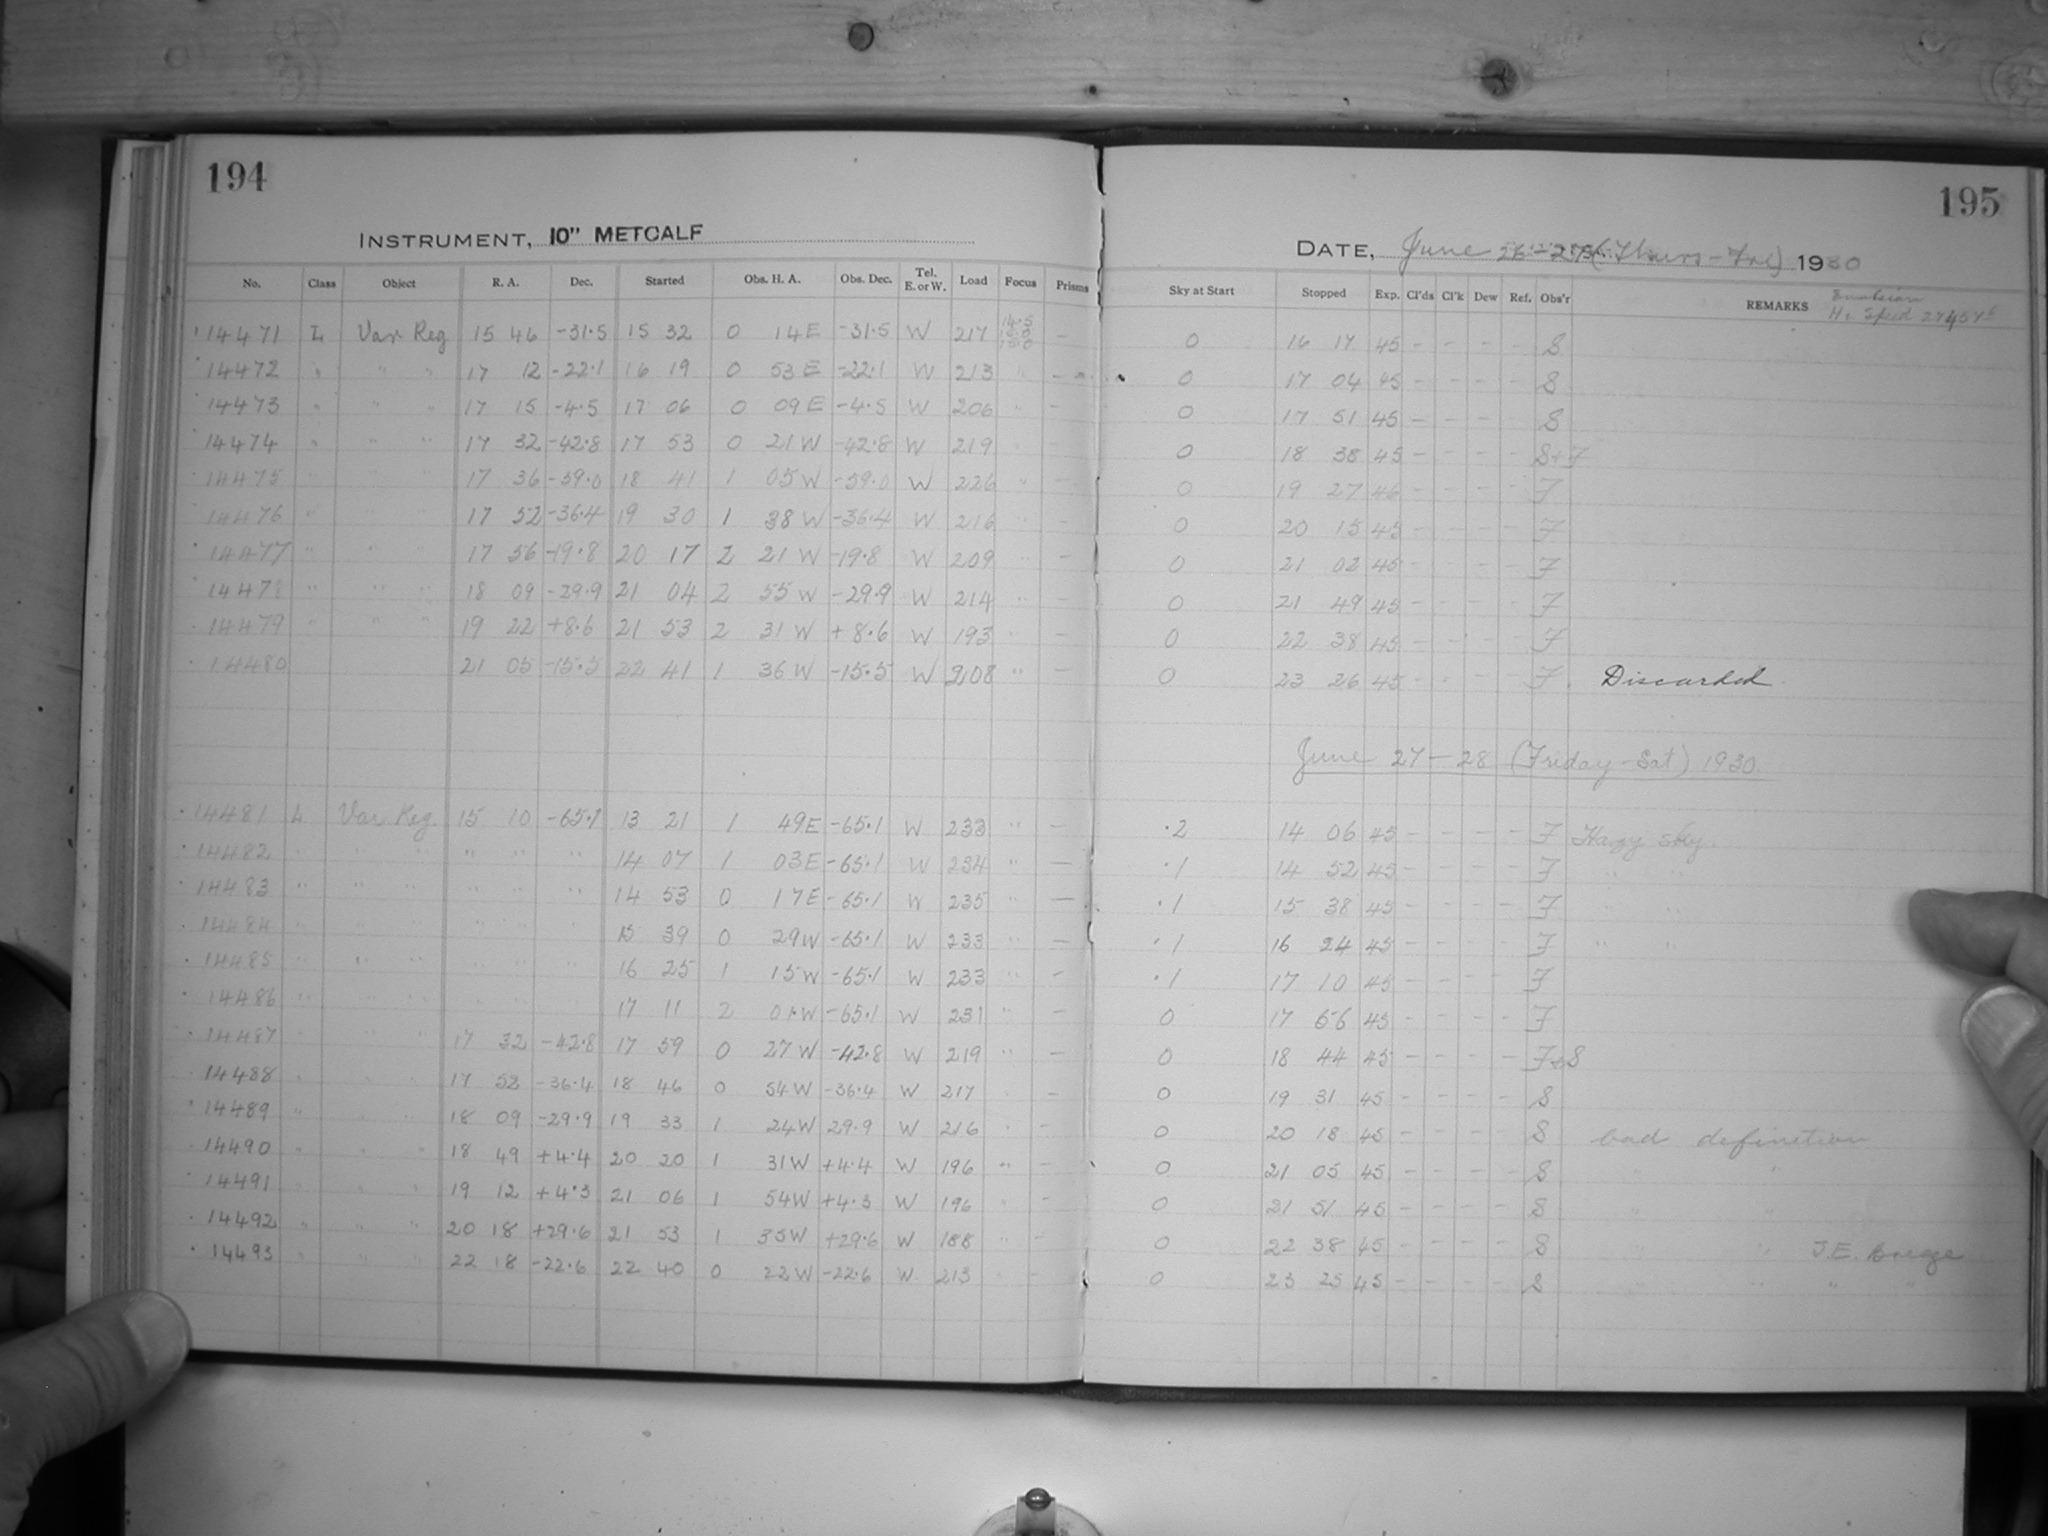 194
INSTRUMENT, 10" METCALF
No. Class Object R. A. Dec. Started Obs. H. A. Obs. Dec. Tel. E. or W. Load Focus Prisms
14471 L Var Reg 15 46 -31.5 15 32 0 14 E -31.5 W 217 14.5 15.0 15.0 —
14472 " " " 17 12 -22.1 16 19 0 53 E -22.1 W 213 " —
14473 " " " 17 15 -4.5 17 06 0 09 E -4.5 W 206 " —
14474 " " " 17 32 -42.8 17 53 0 21 W -42.8 W 219 " —
14475 " " " 17 36 -59.0 18 41 1 05 W -59.0 W 226 " —
14476 " " " 17 52 -36.4 19 30 1 38 W -36.4 W 216 " —
14477 " " " 17 56 -19.8 20 17 2 21 W -19.8 W 209 " —
14478 " " " 18 09 -29.9 21 04 2 55 W -29.9 W 214 " —
14479 " " " 19 22 +8.6 21 53 2 31 W +8.6 W 193 " —
14480 21 05 -15.5 22 41 1 36 W -15.5 W 208 " —
14481 L Var Reg. 15 10 -65.1 13 21 1 49 E -65.1 W 233 " —
14482 " " " " " " 14 07 1 03 E -65.1 W 234 " —
14483 " " " " " " 14 53 0 17 E -65.1 W 235 " —
14484 " " " " " " 15 39 0 29 W -65.1 W 233 " —
14485 " " " " " " 16 25 1 15 W -65.1 W 233 " —
14486 " " " " " " 17 11 2 01 W -65.1 W 231 " —
14487 " " " 17 32 -42.8 17 59 0 27 W -42.8 W 219 " —
14488 " " " 17 52 -36.4 18 46 0 54 W -36.4 W 217 " —
14489 " " " 18 09 -29.9 19 33 1 24 W 29.9 W 216 " —
14490 " " " 18 49 +4.4 20 20 1 31 W +4.4 W 196 " —
14491 " " " 19 12 +4.3 21 06 1 54 W +4.3 W 196 " —
14492 " " " 20 18 +29.6 21 53 1 35 W +29.6 W 188 " —
14493 " " " 22 18 -22.6 22 40 0 22 W -22.6 W 213 " —
195
DATE, June 26-27 (Thurs - Fri) 1930
Sky at Start Stopped Exp. Cl'ds Cl'k Dew Ref. Obs'r REMARKS Emulsion
Hi Speed
0 16 17 45 - - - - S
0 17 04 45 - - - - S
0 17 51 45 - - - - S
0 18 38 45 - - - - S+F
0 19 27 46 - - - - F
0 20 15 45 - - - - F
0 21 02 45 - - - - F
0 21 49 45 - - - - F
0 22 38 45 - - - - F
0 23 26 45 - - - - F. Discarded
June 27-28 (Friday-Sat) 1930
.2 14 06 45 - - - - F Hazy sky.
.1 14 52 45 - - - - F " "
.1 15 38 45 - - - - F " "
.1 16 24 45 - - - - F " "
.1 17 10 45 - - - - F
0 17 56 45 - - - - F
0 18 44 45 - - - - F+S
0 19 31 45 - - - - S
0 20 18 45 - - - - S bad definition
0 21 05 45 - - - - S " "
0 21 51 45 - - - - S " "
0 22 38 45 - - - - S " " S.E. Breeze
0 23 25 45 - - - - S " " " "